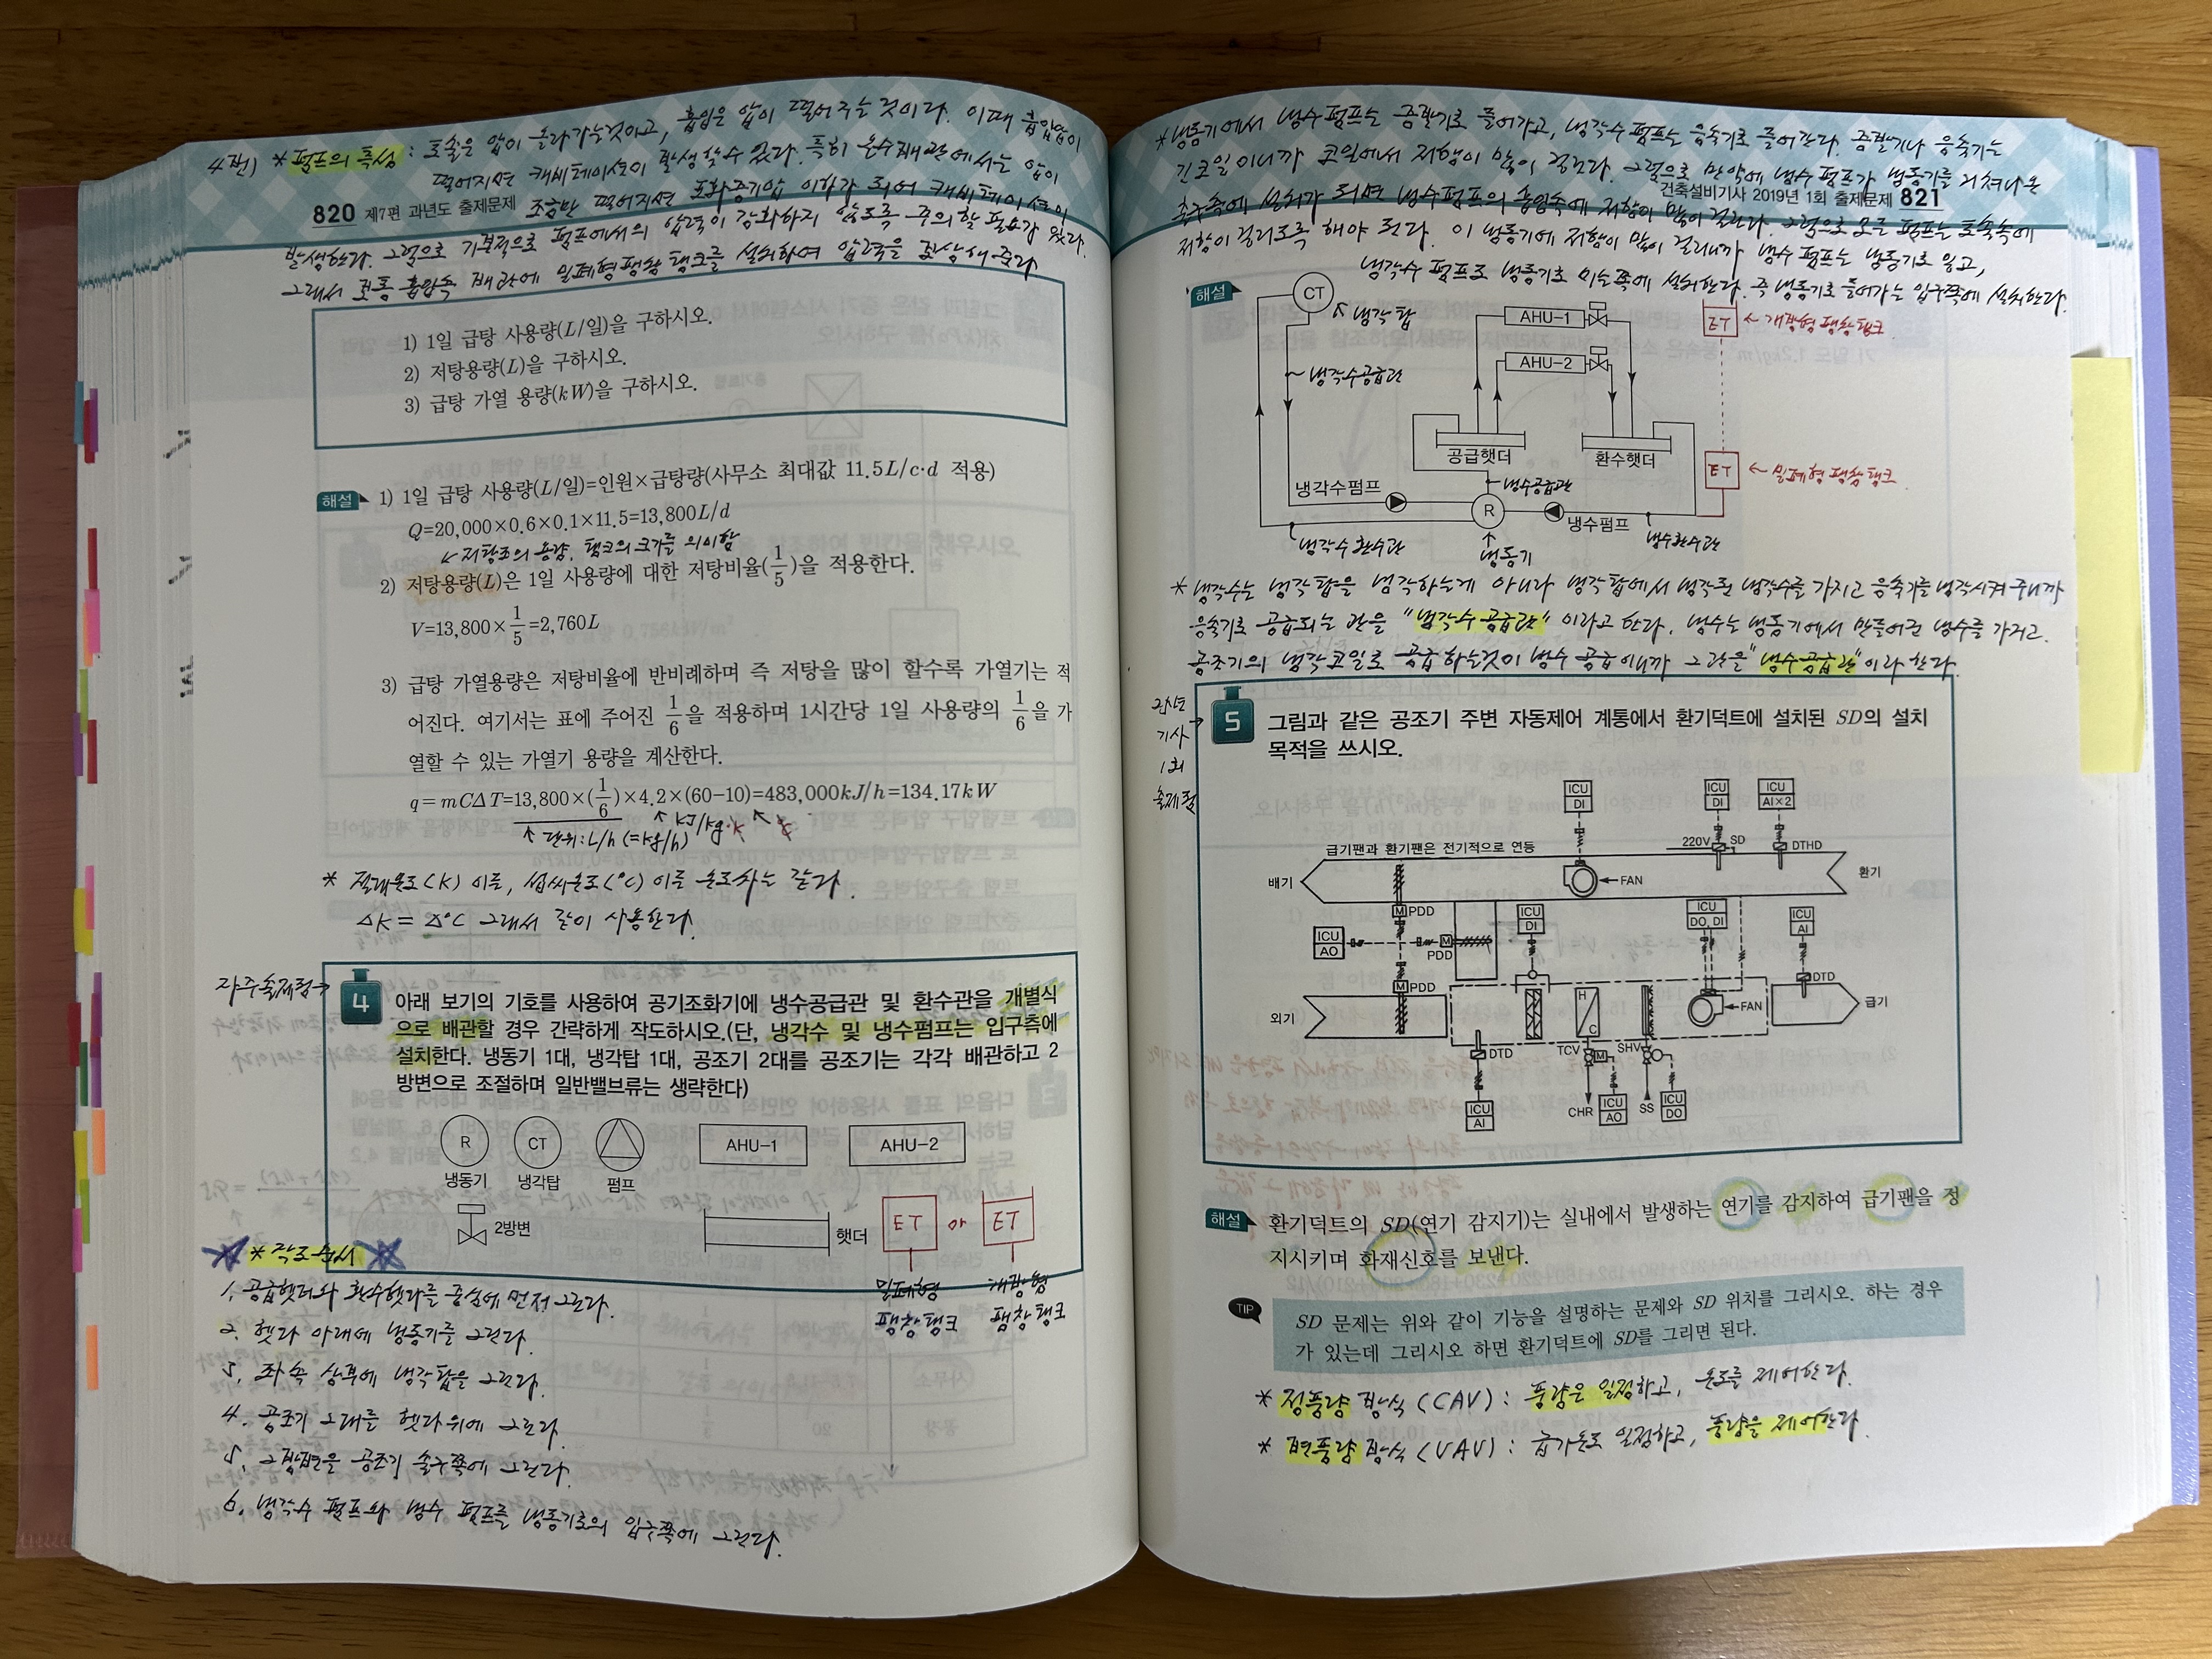 4번) *펌프의 특성 : 토출은 압이 올라가는것이고, 흡입은 압이 떨어주는 것이다. 이때 흡입압이
떨어지면 캐비테이션이 발생할수 있다. 특히 온수배관에서는 압이
조금만 떨어지면 포화증기압 이하가 되어 캐비테이션이
820 제7편 과년도 출제문제
발생한다. 그럼으로 기본적으로 펌프에서의 압력이 강화하지 않도록 주의할 필요가 있다.
그래서 보통 흡입측 배관에 밀폐형팽창탱크를 설치하여 압력을 보상해준다
1) 1일 급탕 사용량(L/일)을 구하시오.
2) 저탕용량(L)을 구하시오.
3) 급탕 가열 용량(kW)을 구하시오.
해설 1) 1일 급탕 사용량(L/일)=인원×급탕량(사무소 최대값 11.5L/c·d 적용)
Q=20,000×0.6×0.1×11.5=13,800L/d
↙ 저탕조의 용량. 탱크의 크기를 의미함
2) 저탕용량(L)은 1일 사용량에 대한 저탕비율(1/5)을 적용한다.
V=13,800×1/5=2,760L
3) 급탕 가열용량은 저탕비율에 반비례하며 즉 저탕을 많이 할수록 가열기는 적
어진다. 여기서는 표에 주어진 1/6을 적용하며 1시간당 1일 사용량의 1/6을 가
열할 수 있는 가열기 용량을 계산한다.
q=mCΔT=13,800×(1/6)×4.2×(60-10)=483,000kJ/h=134.17kW
↑ 단위:L/h (=kg/h) ↑ kJ/kg·k
* 절대온도(K) 이등, 섭씨온도(℃) 이등 온도차는 같다.
ΔK = Δ℃ 그래서 같이 사용한다.
자주출제됨→
4 아래 보기의 기호를 사용하여 공기조화기에 냉수공급관 및 환수관을 개별식
으로 배관할 경우 간략하게 작도하시오.(단, 냉각수 및 냉수펌프는 입구측에
설치한다. 냉동기 1대, 냉각탑 1대, 공조기 2대를 공조기는 각각 배관하고 2
방변으로 조절하며 일반밸브류는 생략한다)
R CT AHU-1 AHU-2
냉동기 냉각탑 펌프
2방변 헷더 ET or ET
밀폐형 개방형
팽창탱크 팽창탱크
* 작도순서
1. 공급헷더와 환수헷다를 중심에 먼저 그린다.
2. 헷다 아래에 냉동기를 그린다.
3. 좌측 상부에 냉각탑을 그린다.
4. 공조기 2대를 헷다위에 그린다.
5. 2방변을 공조기 출구쪽에 그린다.
6. 냉각수 펌프와 냉수 펌프를 냉동기로의 입구쪽에 그린다.
*냉동기에서 냉수펌프는 증발기로 들어가고, 냉각수 펌프는 응축기로 들어간다. 증발기나 응축기는
긴코일이니까 코일에서 저항이 많이 걸린다. 그럼으로 만약에 냉수펌프가 냉동기를 거쳐나온
건축설비기사 2019년 1회 출제문제 821
출구측에 설치가 되면 냉수펌프의 흡입측에 저항이 많이 걸린다. 그럼으로 모든 펌프는 토출측에
저항이 걸리도록 해야 된다. 이 냉동기에 저항이 많이 걸리니까 냉수 펌프는 냉동기로 밀고,
냉각수 펌프도 냉동기로 미는쪽에 설치한다. 즉 냉동기로 들어가는 입구쪽에 설치한다.
해설
CT
↖ 냉각탑
AHU-1
ET ← 개방형 팽창탱크
AHU-2
냉각수공급관
공급헷더 환수헷더
ET ← 밀폐형 팽창탱크
냉각수펌프
냉수공급관
R
냉수펌프
냉각수환수관
냉동기
냉수환수관
*냉각수는 냉각탑을 냉각하는게 아니라 냉각탑에서 냉각된 냉각수를 가지고 응축기를 냉각시켜 주니까
응축기로 공급되는 관을 "냉각수 공급관" 이라고 한다. 냉수는 냉동기에서 만들어진 냉수를 가지고.
공조기의 냉각코일로 공급하는것이 냉수 공급이니까 그 관을 "냉수공급관"이라 한다.
기사
1회
출제됨
5 그림과 같은 공조기 주변 자동제어 계통에서 환기덕트에 설치된 SD의 설치
목적을 쓰시오.
ICU DI
ICU DI
ICU AI×2
급기팬과 환기팬은 전기적으로 연동
220V SD DTHD
배기 FAN 환기
M PDD
ICU DI
ICU DO, DI
ICU AI
ICU AO
M
PDD
M PDD
H
C
DTD
외기 FAN 급기
DTD TCV M SHV
ICU AI
CHR
ICU AO
SS
ICU DO
해설 환기덕트의 SD(연기 감지기)는 실내에서 발생하는 연기를 감지하여 급기팬을 정
지시키며 화재신호를 보낸다.
TIP SD 문제는 위와 같이 기능을 설명하는 문제와 SD 위치를 그리시오. 하는 경우
가 있는데 그리시오 하면 환기덕트에 SD를 그리면 된다.
* 정풍량 방식 (CAV) : 풍량은 일정하고, 온도를 제어한다.
* 변풍량 방식 (VAV) : 급기온도 일정하고, 풍량을 제어한다.